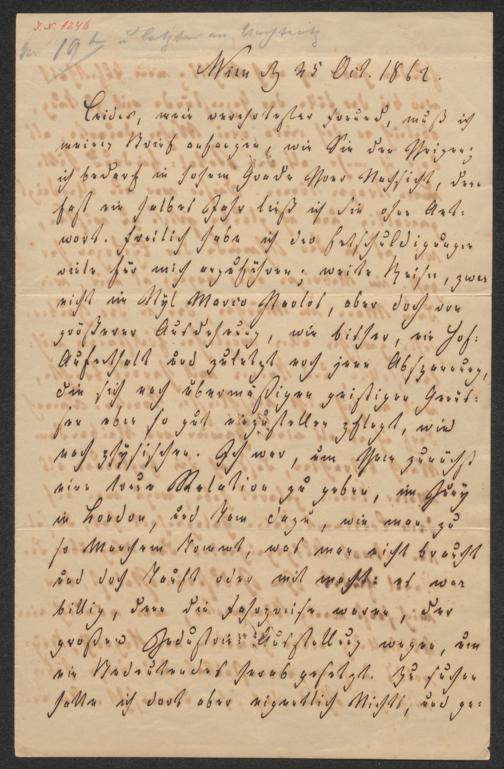 I.N. 1246
19t
Wien d. 25 Oct. 1862.
Leider, mein verehrtester Freund, muß ich
meinen Brief anfangen, wie Sie den Ihrigen;
ich bedarf in hohem Grade Ihrer Nachsicht, denn
fast ein halbes Jahr ließ ich Sie ohne Ant-
wort. Freilich habe ich der Entschuldigungen
viele für mich anzuführen; weite Reisen, zwar
nicht im Styl Marco Paolos, aber doch von
größerer Ausdehnung, wie bisher, ein Hof-
Aufenthalt und zuletzt noch jene Abspannung,
die sich nach übermäßigen geistigen Genüs-
sen eben so gut einzustellen pflegt, wie
nach physischen. Ich war, um Ihnen zunächst
eine treue Relation zu geben, im Juny
in London, und kam dazu, wie man zu
so Manchem kommt, was man nicht braucht
und doch kauft oder mit macht: es war
billig, denn die Fahrpreise waren, der
großen Industrie-Ausstellung wegen, um
ein Bedeutendes herab gesetzt. Zu suchen
hatte ich dort aber eigentlich Nichts, und ge-